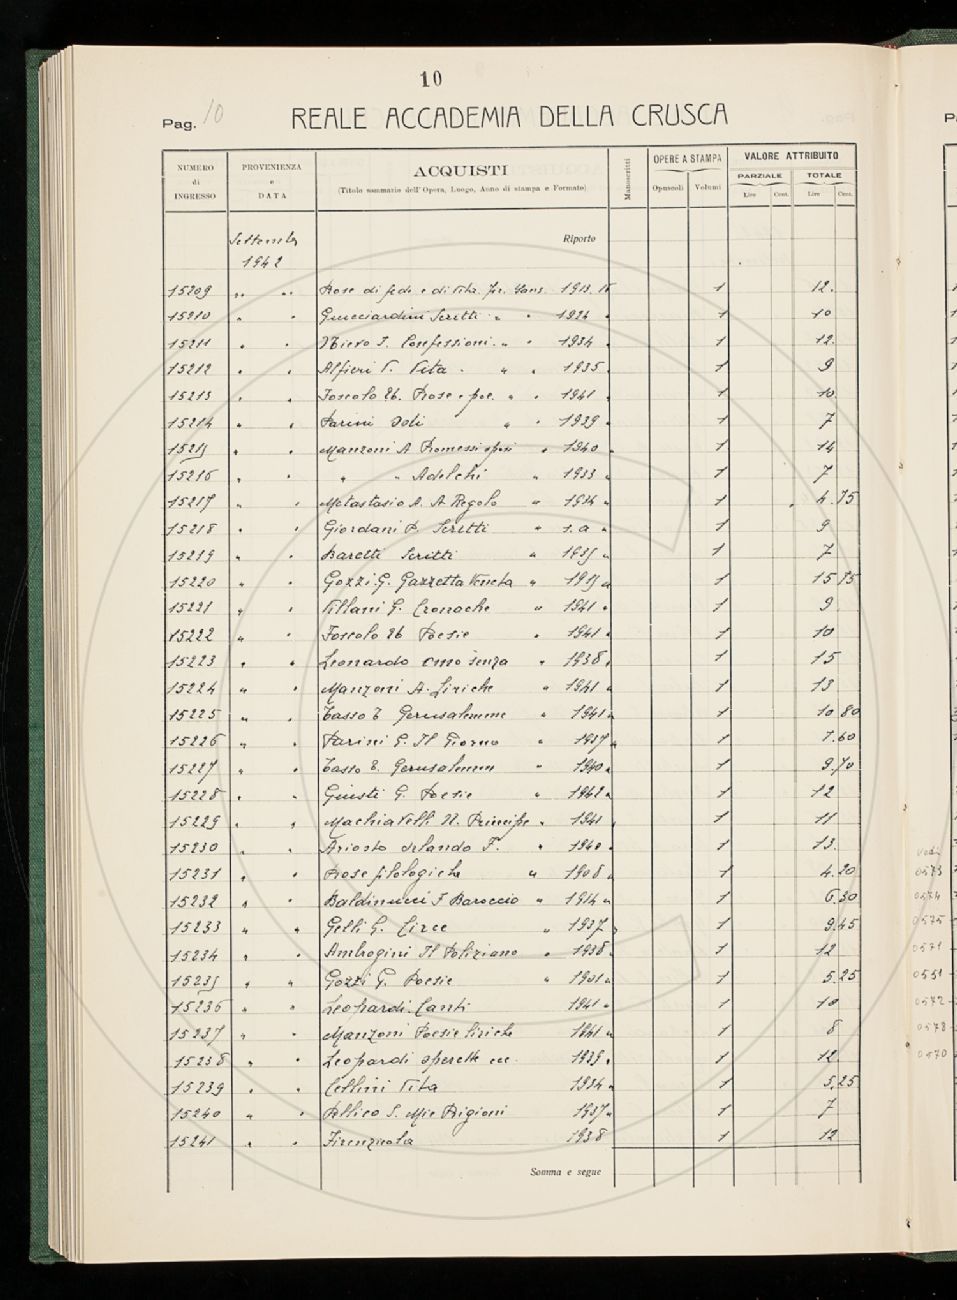 10
Pag. 10 REALE ACCADEMIA DELLA CRUSCA
NUMERO di INGRESSO
PROVENIENZA e DATA
ACQUISTI
(Titolo sommario dell'Opera, Luogo, Anno di stampa e Formato)
Manoscritti
OPERE A STAMPA
Opuscoli Volumi
VALORE ATTRIBUITO
PARZIALE TOTALE
Lire Cent. Lire Cent.
Riporto
1942
15209 " " Prose di fede e di vita. Fir. Vans. 1913. 16 1 12.
15210 " " Guicciardini Scritti " " 1924 " 1 10
15211 " " Nievo I. Confessioni " " 1934 " 1 12.
15212 " " Alfieri V. Vita " " 1935 " 1 9
15213 " " Foscolo U. Prose e poe. " " 1941 " 1 10
15214 " " Parini Odi " " 1929 " 1 7
15215 " " Manzoni A Promessi sposi " 1940 " 1 14
15216 " " " " Adelchi " 1933 " 1 7
15217 " " Metastasio A. A Regolo " 1924 " 1 4.75
15218 " " Giordani P. Scritti " s.a. " 1 9
15219 " " Baretti Scritti " 1935 " 1 7
15220 " " Gozzi G. Gazzetta Veneta " 1915 " 1 15 75
15221 " " Villani G. Cronache " 1941 " 1 9
15222 " " Foscolo U Poesie " 1941 " 1 10
15223 " " Leonardo omo senza " 1938 " 1 15
15224 " " Manzoni A. Liriche " 1941 " 1 13
15225 " " Tasso T Gerusalemme " 1941 " 1 10 80
15226 " " Parini G. Il Giorno " 1937 " 1 7.60
15227 " " Tasso T. Gerusalemm " 1940 " 1 9.70
15228 " " Giusti G. Poesie " 1942 " 1 12
15229 " " Machiavelli N. Principe " 1941 " 1 11
15230 " " Ariosto Orlando F. " 1940 " 1 13.
15231 " " Prose filologiche " 1908 " 1 4.20
15232 " " Baldinucci F Baroccio " 1914 " 1 6.30
15233 " " Gelli G. Circe " 1937 " 1 9.45
15234 " " Ambrogini Il Poliziano " 1938 " 1 12
15235 " " Gozzi G. Poesie " 1901 " 1 5.25
15236 " " Leopardi Canti 1941 " 1 10
15237 " " Manzoni Poesie liriche 1941 " 1 8
15238 " " Leopardi operette ecc. 1939 " 1 12.
15239 " " Cellini Vita 1934 " 1 5.25
15240 " " Pellico S. Mie Prigioni 1937 " 1 7
15241 " " Firenzuola 1938 1 12
Somma e segue
vedi
0573
0574
0575
0571
0551
0572
0578
0570